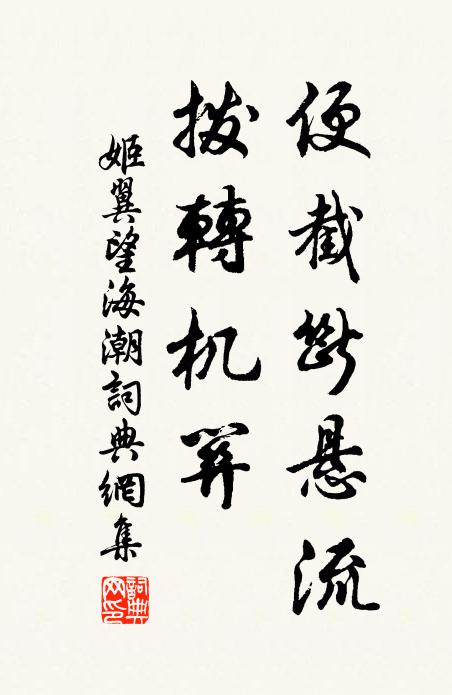 便截斷悬流
拨轉机關
姬翼望海潮詞典網集
詞典网印